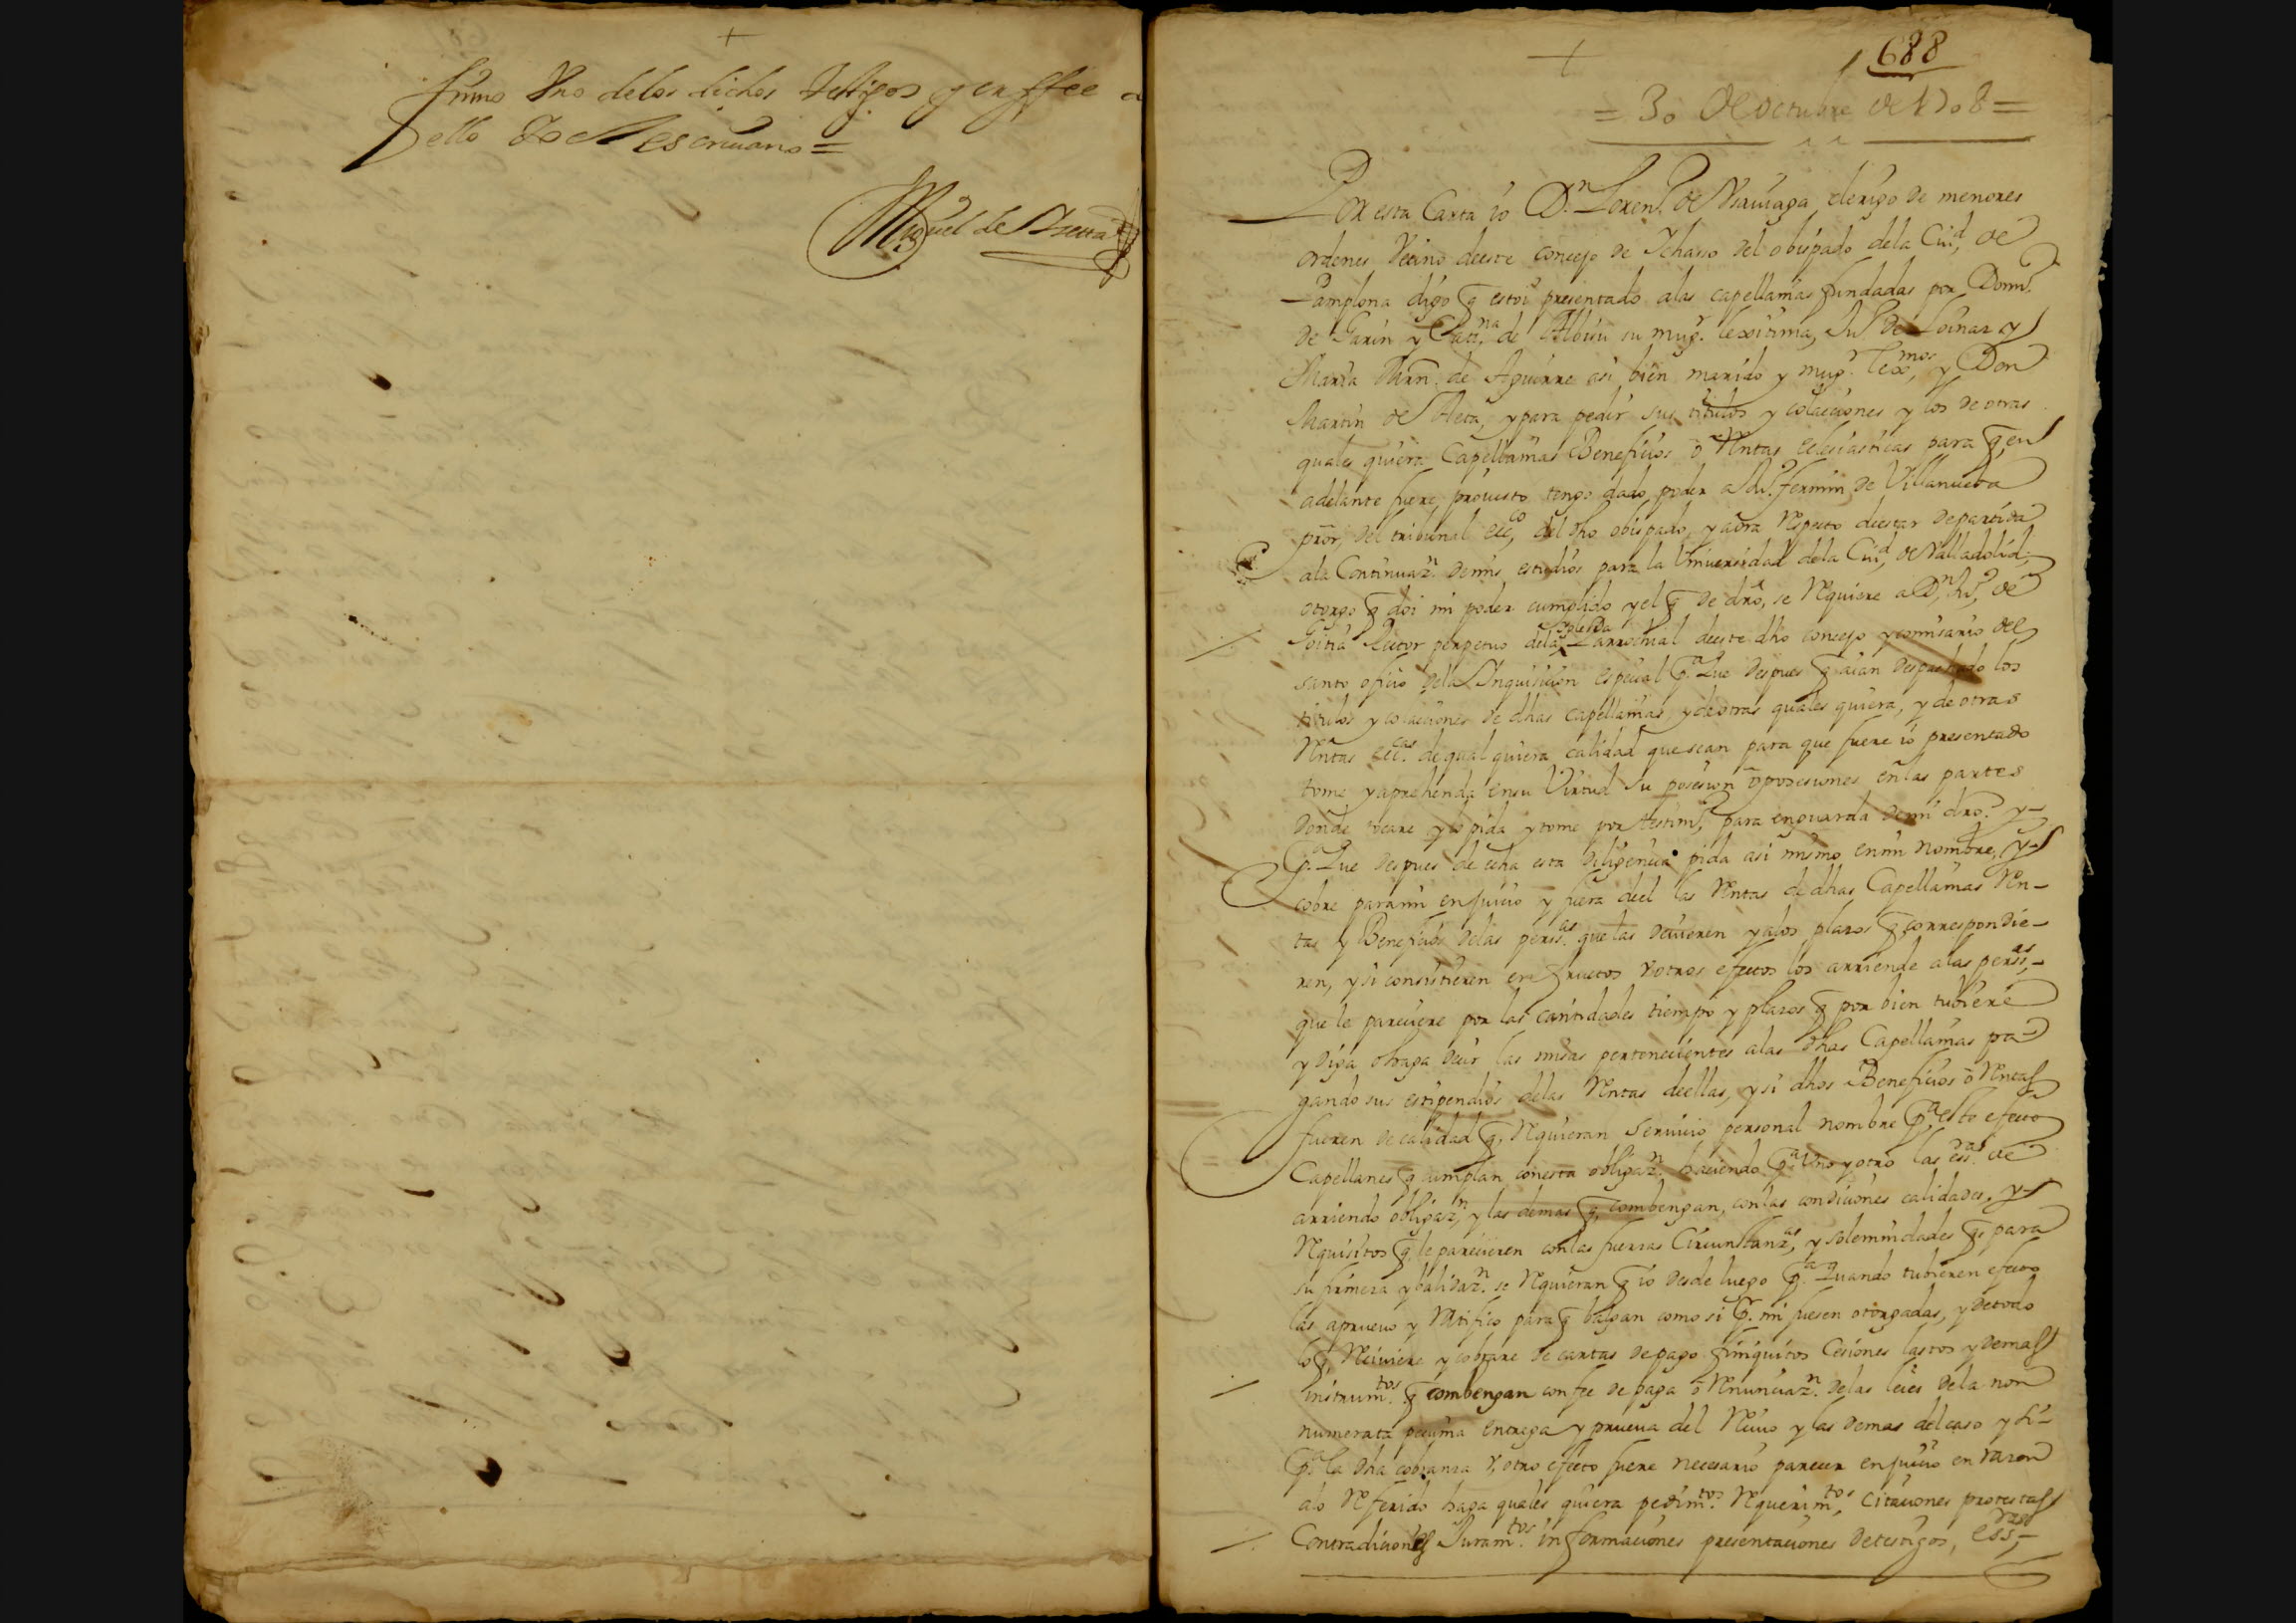 +
firmo Uno delos dichos testigos y en ffee a
ello Yo el escriuano =
Miguel de
+
688
= 30 de octubre de 1708 =
Por esta Carta io Dn. Loren.º de clerigo de menores
ordenes Vecino deeste concejo de Ichaso del obispado dela Ciud, de
Pamplona digo q estoi presentado alas capellanias fundadas por Dom.º
de Garin y Catna. de Albisu su mugr. lexitima, Ju.º de Loinaz y
Maria de Aguirre asi bien marido y mugr. lexmos, y Don
Martin de Oleta, y para pedir sus titulos y colaciones y los de otras
quales quiera Capellanias Beneficios ō Rentas eclesiasticas para q en
adelante fuere prouisto tengo dado poder a Ju.º fermin de Villanueba
pror, del tribunal eccco, del dho obispado, y aora Respecto deestar departida
ala Continuazn. demis estudios para la Uniuersidad dela Ciud, de Valladolid;
otorgo q doi mi poder cumplido y el q de drō, se Requiere a Dn, Ju.º, de
Goitia Rector perpetuo dela Iglesia Parrochial deeste dho concejo y comisario del
santo oficio dela Inquisicion especial pa. Que despues q aian despachado los
titulos y colaciones de dhas capellanias, y deotras quales quiera, y de otras
Rentas ecccas. de qual quiera calidad que sean para que fuere io presentado
tome y aprehenda en su Virtud su posesion ō posesiones en las partes
donde tocare y lo pida y tome por testim.º, para enguarda demi dro.º y
pa. Que despues de echa esta diligencia pida asi mismo en mi nombre, y
cobre para mi en juicio y fuera deel las Rentas de dhas Capellanias Ren-
tas y Beneficios delas persas. que las deuieren y alos plazos q correspondie-
ren, y si consistieren en fructos v otros efectos los arriende alas persas,
que le pareciere por las cantidades tiempo y plazos q por bien tubiere
y diga ō haga decir las misas pertenecientes alas dhas Capellanias pa-
gando sus estipendios delas Rentas deellas, y si dhos Beneficios ō Rentas
fueren de calidad q, Requieran Seruicio personal nombre pa, este efecto
Capellanes q cumplan con esta obligazn. haciendo pa. Uno y otro las essras. de
arriendo obligazn, y las demas q, combengan, con las condiciones calidades, y
Requisitos q, le parecieren con las fuerzas Circunstanzas, y solemnidades q, para
su firmeza y balidazn. se Requieran q io desde luego pa. Quando tubieren efecto
las aprueuo y Ratifico para q balgan como si pr. mi fuesen otorgadas, y detodo
lo q, Reciuiere y cobrare de cartas de pago finiquitos Cesiones lastos y demas
instrumtos. q combengan con fee de paga ō Renunciazn. delas leies dela non
numerata pecunia entrega y prueua del Reciuo y las demas del caso y si
pa. la dha cobranza v, otro efecto fuere necesario parecer en juicio en razon
alo Referido haga quales quiera pedimtos. Requerimtos, Citaciones protestas
Contradiciones Juramtos. informaciones presentaciones detestigos, essras,